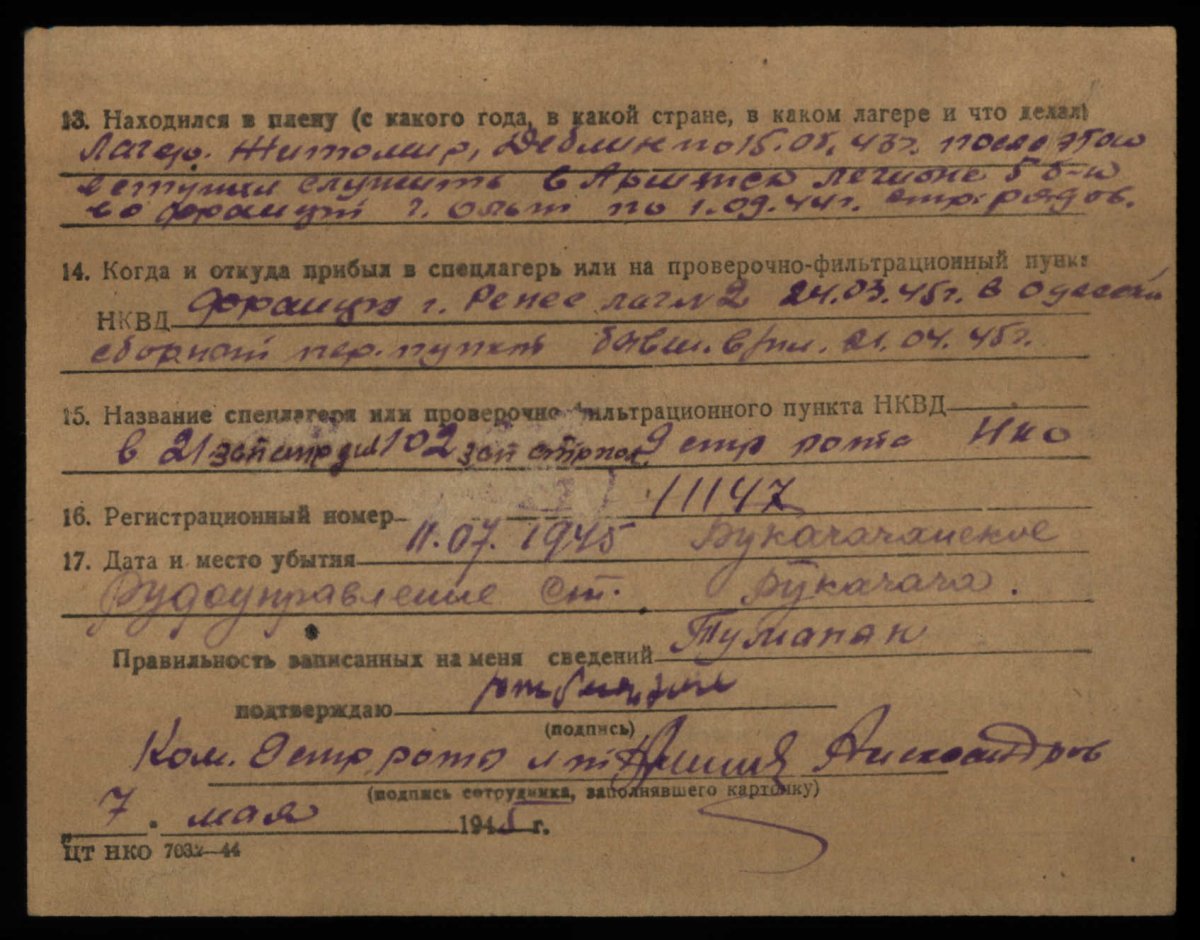 13. Находился в плену (с какого года, в какой стране, в каком лагере и что делал)
Лагер. Житомир, Деблин по 15.05.43г. после этого
вступил служить в Армянск легионе 58-й
во франции г. по 1.09.44г. стр. рядов.
14. Когда и откуда прибыл в спецлагерь или на проверочно-фильтрационный пункт
НКВД Франция г. Ренес лаг №2 24.03.45г. в Одесский
сборный пер. пункт бывш. в/пл. 21.04.45г.
15. Название спецлагеря или проверочно-фильтрационного пункта НКВД
в 21 зап стр див 102 зап стр пол. 9 стр рота НКО
16. Регистрационный номер 11147
17. Дата и место убытия 11.07.1945 Букачачинское
Рудоуправление ст. Букачача.
Правильность записанных на меня сведений Туманян
подтверждаю
(подпись)
Ком. 9 стр рота л-т Александров
(подпись сотрудника, заполнявшего карточку)
„7" мая 1945 г.
ЦТ НКО 7032—44